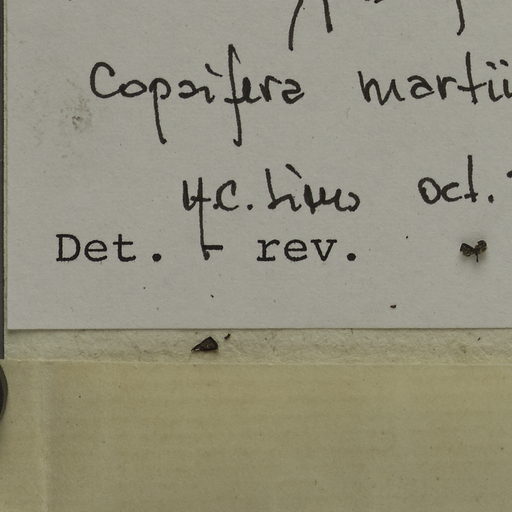 Copaifera martii
H.C. Lima oct.
Det. - rev.